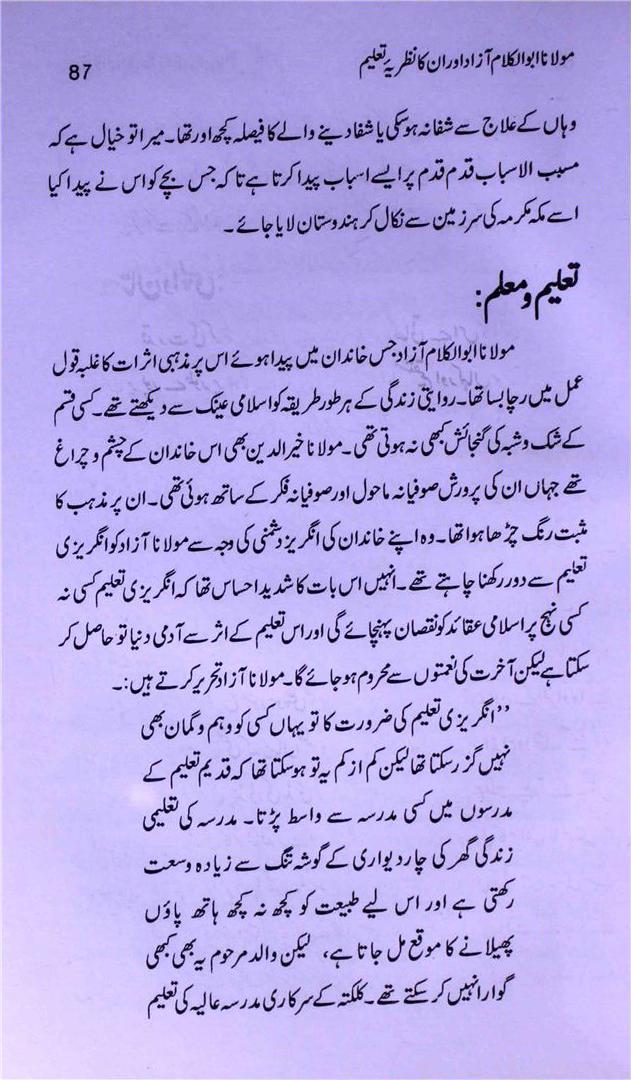 مولانا ابوالکلام آزاد اور ان کا نظریۂ تعلیم
87
وہاں کے علاج سے شفا نہ ہوسکی یا شفا دینے والے کا فیصلہ کچھ اور تھا۔ میرا تو خیال ہے کہ
مسبب الاسباب قدم قدم پر ایسے اسباب پیدا کرتا ہے تاکہ جس بچے کو اس نے پیدا کیا
اسے مکہ مکرمہ کی سرزمین سے نکال کر ہندوستان لایا جائے۔
تعلیم و معلم:
مولانا ابوالکلام آزاد جس خاندان میں پیدا ہوئے اس پر مذہبی اثرات کا غلبہ قول
عمل میں رچا بسا تھا۔ روایتی زندگی کے ہر طور طریقہ کو اسلامی عینک سے دیکھتے تھے۔ کسی قسم
کے شک و شبہ کی گنجائش کبھی نہ ہوتی تھی۔ مولانا خیرالدین بھی اس خاندان کے چشم و چراغ
تھے جہاں ان کی پرورش صوفیانہ ماحول اور صوفیانہ فکر کے ساتھ ہوئی تھی۔ ان پر مذہب کا
مثبت رنگ چڑھا ہوا تھا۔ وہ اپنے خاندان کی انگریز دشمنی کی وجہ سے مولانا آزاد کو انگریزی
تعلیم سے دور رکھنا چاہتے تھے۔ انہیں اس بات کا شدید احساس تھا کہ انگریزی تعلیم کسی نہ
کسی نہج پر اسلامی عقائد کو نقصان پہنچائے گی اور اس تعلیم کے اثر سے آدمی دنیا تو حاصل کر
سکتا ہے لیکن آخرت کی نعمتوں سے محروم ہو جائے گا۔ مولانا آزاد تحریر کرتے ہیں:۔
”انگریزی تعلیم کی ضرورت کا تو یہاں کسی کو وہم و گمان بھی
نہیں گزر سکتا تھا لیکن کم از کم یہ تو ہوسکتا تھا کہ قدیم تعلیم کے
مدرسوں میں کسی مدرسہ سے واسط پڑتا۔ مدرسہ کی تعلیمی
زندگی گھر کی چار دیواری کے گوشہ تنگ سے زیادہ وسعت
رکھتی ہے اور اس لیے طبیعت کو کچھ نہ کچھ ہاتھ پاؤں
پھیلانے کا موقع مل جاتا ہے، لیکن والد مرحوم یہ بھی کبھی
گوارا نہیں کرسکتے تھے۔ کلکتہ کے سرکاری مدرسہ عالیہ کی تعلیم